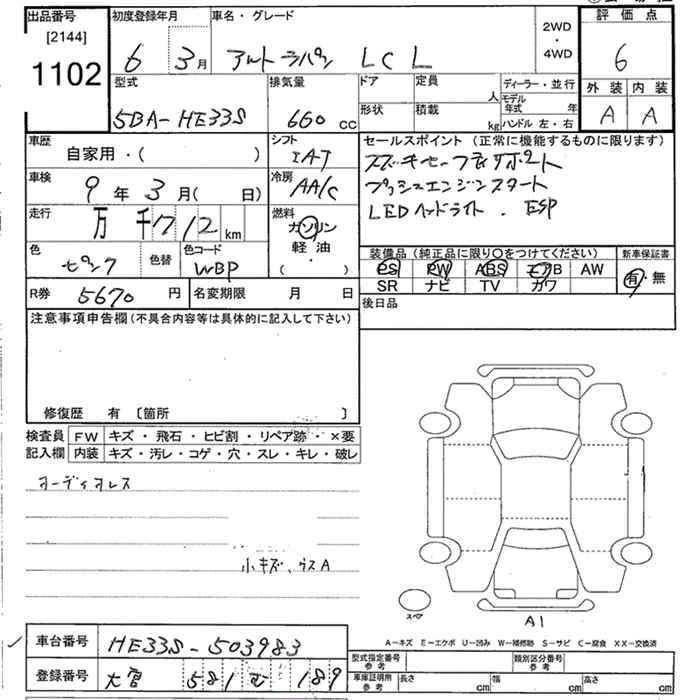 出品番号 初度登録年月 車名・グレード 2WD・4WD 評価点
[2144]
1102
6 3月 アルトラパン LCL 6
型式 排気量 ドア 定員 人 ディーラー・並行 外装 内装
5BA-HE33S 660 CC 形状 積載 kg モデル年式 年 A A
ハンドル 左・右
車歴 自家用・( ) シフト IAT
車検 9年 3月( 日) 冷房 AA/C
走行 万 千 712 km 燃料 ガソリン・軽油・( )
色 ピンク 色替 色コード WBP
R券 5670 円 名変期限 月 日
セールスポイント(正常に機能するものに限ります)
スズキセーフティサポート
プッシュエンジンスタート
LEDヘッドライト. ESP
装備品(純正品に限り○をつけてください) 新車保証書
PS PW ABS エアB AW 有・無
SR ナビ TV カワ
後日品
注意事項申告欄(不具合内容等は具体的に記入して下さい)
修復歴 有 〔箇所 〕
検査員記入欄 FW キズ・飛石・ヒビ割・リペア跡・×要
内装 キズ・汚レ・コゲ・穴・スレ・キレ・破レ
オーディオレス
小キズ、ウスA
スペア
A1
A-キズ E-エクボ U-凹み W-補修跡 S-サビ C-腐食 XX-交換済
車台番号 HE33S-503983
登録番号 大宮 581 む 189
型式指定番号 参考 類別区分番号 参考
車庫証明用 参考 長さ cm 幅 cm 高さ cm